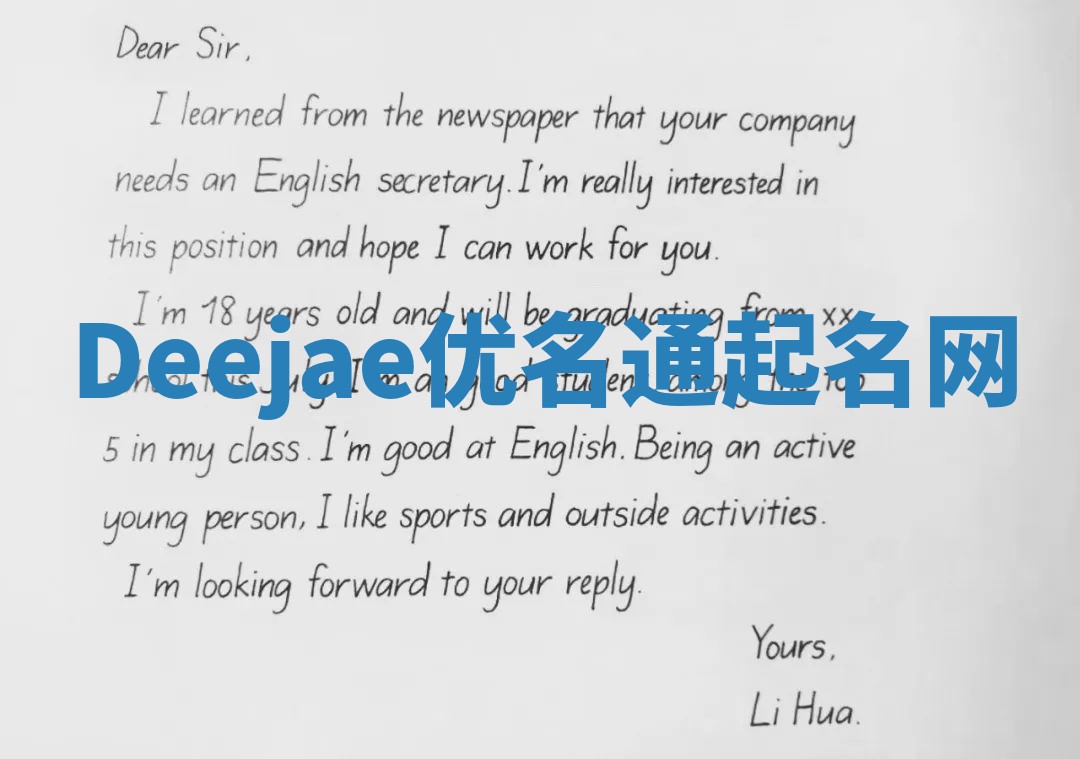 Dear Sir,
I learned from the newspaper that your company
needs an English secretary. I'm really interested in
this position and hope I can work for you.
I'm 18 years old and will be graduating from xx
Deejae优名通起名网
July. I'm a good student among the top
5 in my class. I'm good at English. Being an active
young person, I like sports and outside activities.
I'm looking forward to your reply.
Yours,
Li Hua.